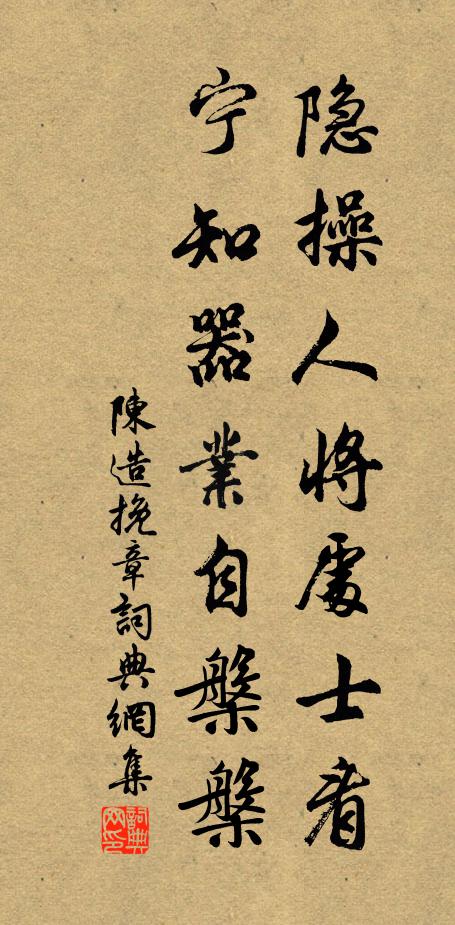 隐操人将處士者
宁知器業自槃槃
陳造挽章詞典網集
詞典网印